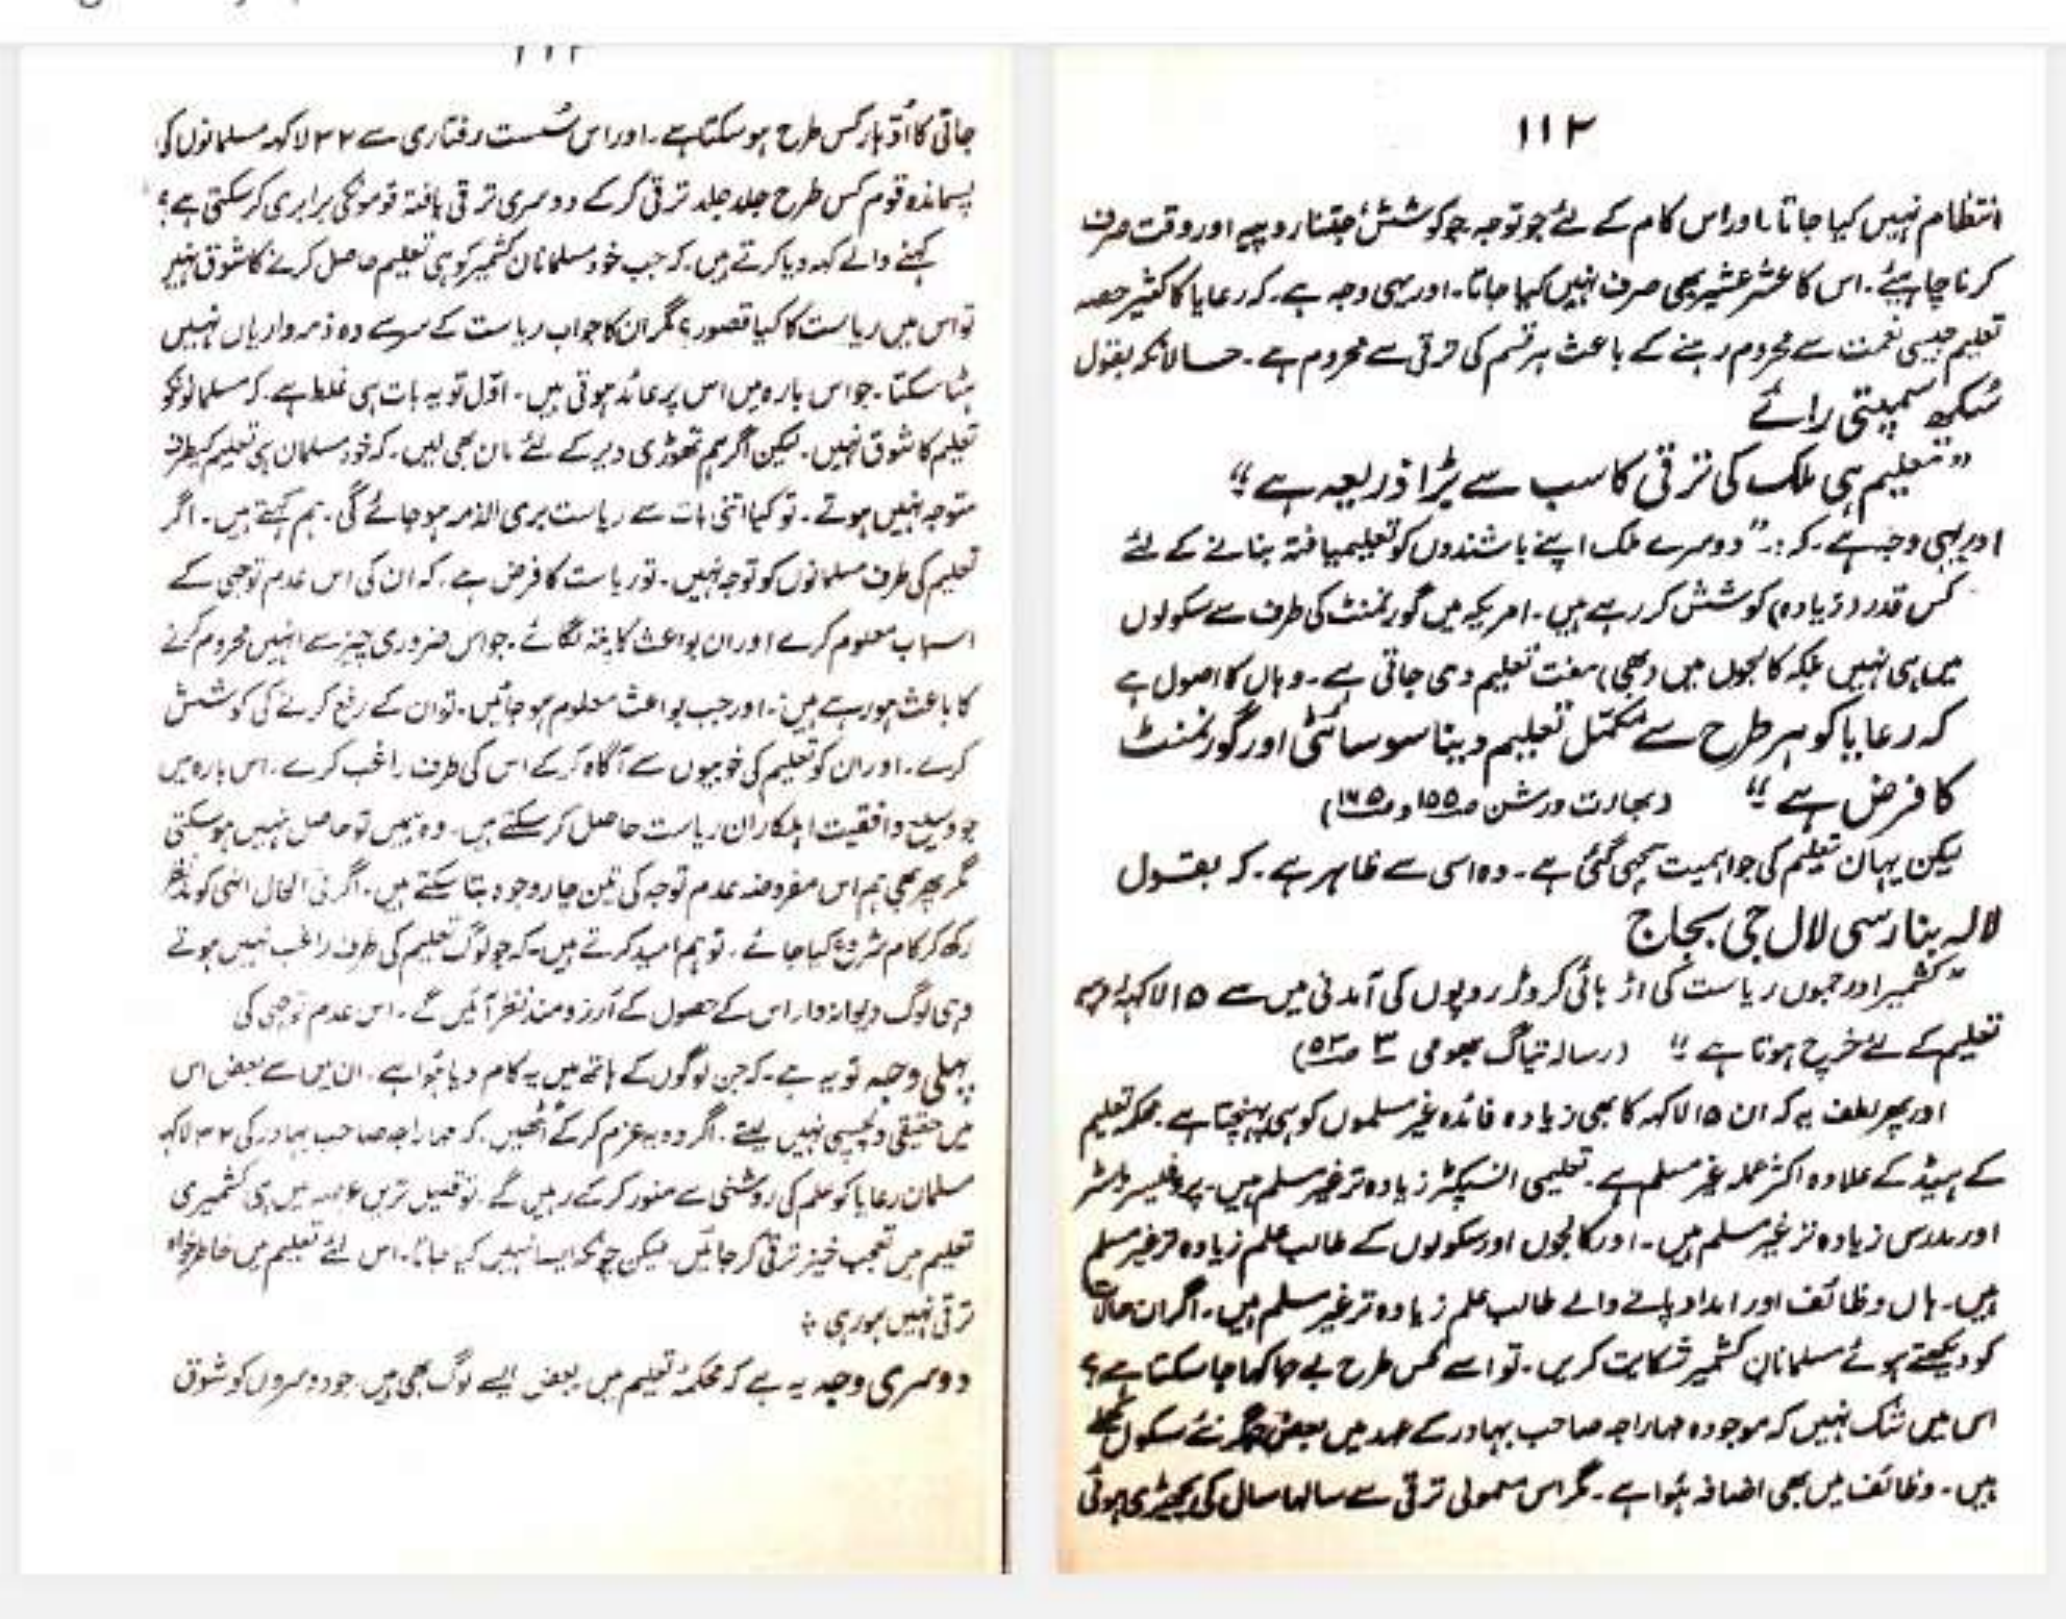 ۱۱۲
انتظام نہیں کیا جاتا۔ اور اس کام کے لئے جو توجہ جو کوشش جتنا روپیہ اور وقت صرف
کرنا چاہیئے۔ اس کا عشر عشیر بھی صرف نہیں کیا جاتا۔ اور یہی وجہ ہے۔ کہ رعایا کا کثیر حصہ
تعلیم جیسی نعمت سے محروم رہنے کے باعث ہر قسم کی ترقی سے محروم ہے۔ حالانکہ بقول
سُکھ سمپتی رائے
"تعلیم ہی ملک کی ترقی کا سب سے بڑا ذریعہ ہے"
اور یہی وجہ ہے۔ کہ:۔ "دوسرے ملک اپنے باشندوں کو تعلیمیافتہ بنانے کے لئے
کس قدر (زیادہ) کوشش کر رہے ہیں۔ امریکہ میں گورنمنٹ کی طرف سے سکولوں
میں ہی نہیں بلکہ کالجوں میں (بھی) مفت تعلیم دی جاتی ہے۔ وہاں کا اصول ہے
کہ رعایا کو ہر طرح سے مکمّل تعلیم دینا سوسائٹی اور گورنمنٹ
کا فرض ہے" (بھارت درشن صـ۱۵۵ و صـ۱۷۵)
لیکن یہاں تعلیم کی جو اہمیت سمجھی گئی ہے۔ وہ اسی سے ظاہر ہے۔ کہ بقول
لالہ بنارسی لال جی بجاج
"کشمیر اور جموں ریاست کی اڑہائی کروڑ روپوں کی آمدنی میں سے ۱۵ لاکھ روپیہ
تعلیم کے لئے خرچ ہوتا ہے" (رسالہ تیاگ بھومی ۳ صـ۵۳)
اور پھر لطف یہ کہ ان ۱۵ لاکھ کا بھی زیادہ فائدہ غیر مسلموں کو ہی پہنچتا ہے۔ محکمہ تعلیم
کے ہیڈ کے علاوہ اکثر عملہ غیر مسلم ہے۔ تعلیمی انسپکٹر زیادہ تر غیر مسلم ہیں۔ پروفیسر ماسٹر
اور مدرس زیادہ تر غیر مسلم ہیں۔ اور کالجوں اور سکولوں کے طالب علم زیادہ تر غیر مسلم
ہیں۔ ہاں وظائف اور امداد پانے والے طالب علم زیادہ تر غیر مسلم ہیں۔ اگر ان حالات
کو دیکھتے ہوئے مسلمانان کشمیر شکایت کریں۔ تو اسے کس طرح بے جا کہا جا سکتا ہے؟
اس میں شک نہیں کہ موجودہ مہاراجہ صاحب بہادر کے عہد میں بعض جگہ نئے سکول کھلے
ہیں۔ وظائف میں بھی اضافہ ہوا ہے۔ مگر اس معمولی ترقی سے سالہا سال کی بچھڑی ہوئی
جاتی کا اُدّہار کس طرح ہو سکتا ہے۔ اور اس سُست رفتاری سے ۳۲ لاکھ مسلمانوں کی
پسماندہ قوم کس طرح جلد جلد ترقی کر کے دوسری ترقی یافتہ قوموں کی برابری کر سکتی ہے؟
کہنے والے کہہ دیا کرتے ہیں۔ کہ جب خود مسلمانان کشمیر کو ہی تعلیم حاصل کرنے کا شوق نہیں
تو اس میں ریاست کا کیا قصور؟ مگر ان کا جواب ریاست کے سر سے وہ ذمہ واریاں نہیں
ہٹا سکتا۔ جو اس بارہ میں اس پر عائد ہوتی ہیں۔ اوّل تو یہ بات ہی غلط ہے۔ کہ مسلمانوں کو
تعلیم کا شوق نہیں۔ لیکن اگر ہم تھوڑی دیر کے لئے مان بھی لیں۔ کہ خود مسلمان ہی تعلیم کیطرف
متوجہ نہیں ہوتے۔ تو کیا اتنی بات سے ریاست بری الذمہ ہو جائے گی۔ ہم کہتے ہیں۔ اگر
تعلیم کی طرف مسلمانوں کو توجہ نہیں۔ تو ریاست کا فرض ہے۔ کہ ان کی اس عدم توجہی کے
اسباب معلوم کرے اور ان بواعث کا پتہ لگائے۔ جو اس ضروری چیز سے انہیں محروم کرنے
کا باعث ہو رہے ہیں۔ اور جب بواعث معلوم ہو جائیں۔ تو ان کے رفع کرنے کی کوشش
کرے۔ اور ان کو تعلیم کی خوبیوں سے آگاہ کر کے اس کی طرف راغب کرے۔ اس بارہ میں
جو وسیع واقفیت اہلکاران ریاست حاصل کر سکتے ہیں۔ وہ ہمیں تو حاصل نہیں ہو سکتی
مگر پھر بھی ہم اس مفروضہ عدم توجہ کی تین چار وجوہ بتا سکتے ہیں۔ اگر فی الحال انہی کو مدنظر
رکھ کر کام شروع کیا جائے۔ تو ہم امید کرتے ہیں۔ کہ جو لوگ تعلیم کی طرف راغب نہیں ہوتے
وہی لوگ دیوانہ وار اس کے حصول کے آرزومند نظر آئیں گے۔ اس عدم توجہی کی
پہلی وجہ تو یہ ہے۔ کہ جن لوگوں کے ہاتھ میں یہ کام دیا ہوا ہے۔ ان میں سے بعض اس
میں حقیقی دلچسپی نہیں لیتے۔ اگر وہ یہ عزم کر کے اُٹھیں۔ کہ مہاراجہ صاحب بہادر کی ۳۲ لاکھ
مسلمان رعایا کو علم کی روشنی سے منور کر کے رہیں گے۔ تو قلیل ترین عرصہ میں ہی کشمیری
تعلیم میں تعجب خیز ترقی کر جائیں۔ لیکن چونکہ ایسا نہیں کیا جاتا۔ اس لئے تعلیم میں خاطر خواہ
ترقی نہیں ہو رہی
دوسری وجہ یہ ہے کہ محکمہ تعلیم میں بعض ایسے لوگ بھی ہیں۔ جو دوسروں کو شوق